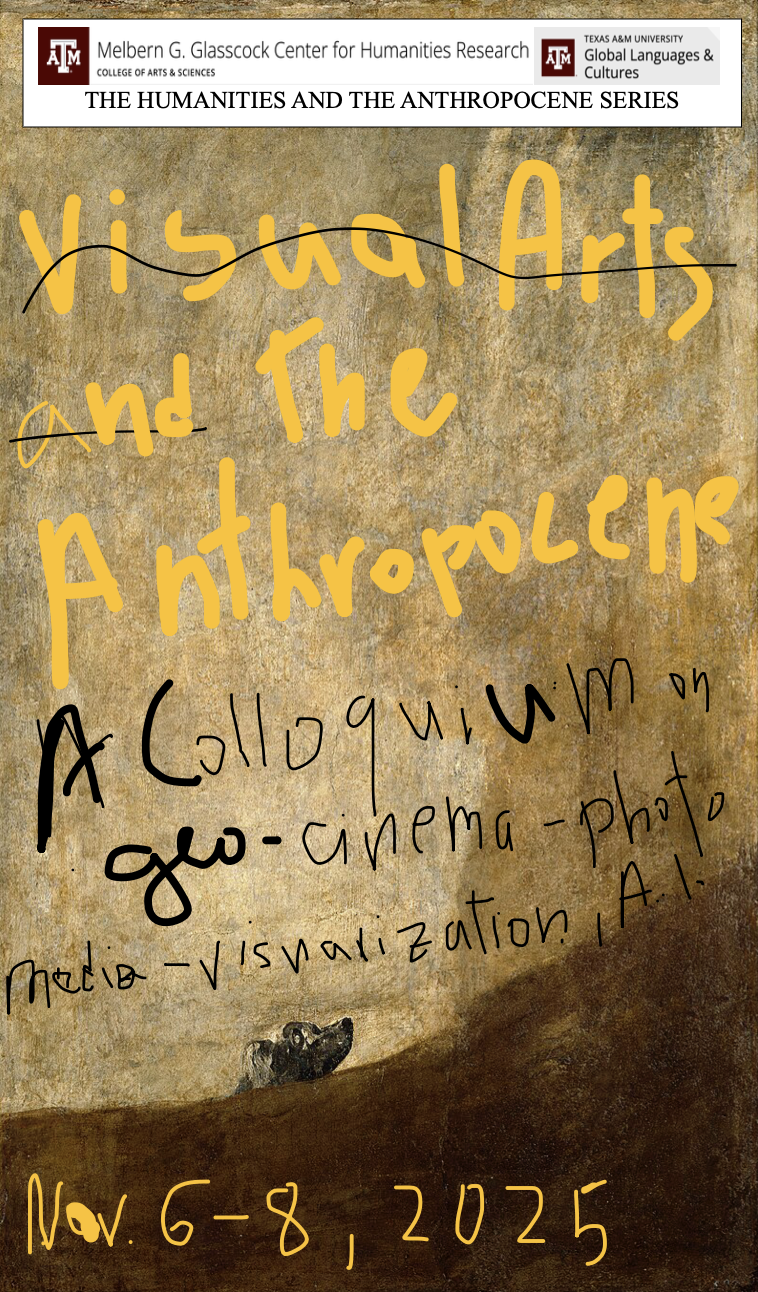 Melbern G. Glasscock Center for Humanities Research
COLLEGE OF ARTS & SCIENCES
TEXAS A&M UNIVERSITY
Global Languages &
Cultures
THE HUMANITIES AND THE ANTHROPOCENE SERIES
Visual Arts
and The
Anthropocene
A Colloquium on
geo-cinema-photo
media-visualization, A.I.
Nov. 6-8, 2025